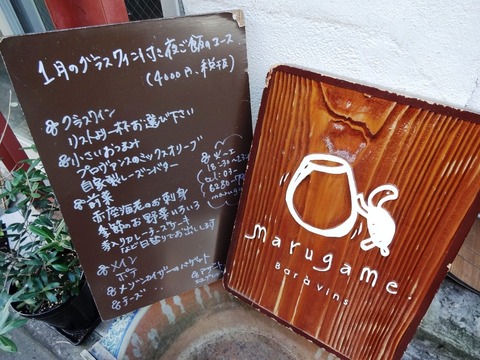 1月のグラスワイン付き夜ご飯のコース
(4000円、税抜)
グラスワイン
リストより一杯お選び下さい
小さいおつまみ
プロヴァンスのミックスオリーブ
自家製レーズンバター
前菜
赤座海老のお刺身
季節のお野菜いろいろ
など日替りでお出しします
メイン
ポテ
メゾンカイザーのバゲット
チーズ
marugame
Bar à vins